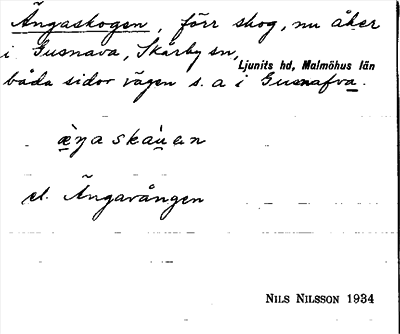 Ängaskogen, förr skog, nu åker
i Gusnava, Skårby sn,
Ljunits hd, Malmöhus län
båda sidor vägen s. a i Gusnafva.
el. Ängavången
NILS NILSSON 1934